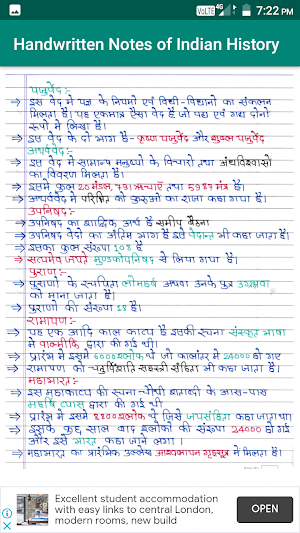 VoLTE 4G 7:22 PM
Handwritten Notes of Indian History
यजुर्वेद:-
⇒ इस वेद में यज्ञ के नियमों एवं विधी-विधानों का संकलन
मिलता है। यह एकमात्र ऐसा वेद है जो पद्य एवं गद्य दोनों
रूपों में लिखा है।
⇒ इस वेद के दो भाग है- कृष्ण यजुर्वेद और शुक्ल यजुर्वेद
अथर्ववेद:-
⇒ इस वेद में सामान्य मनुष्यों के विचारों तथा अंधविश्वासों
का विवरण मिलता है।
⇒ इसमें कुल 20 मंडल, 731 ऋचाएँ तथा 5987 मंत्र है।
⇒ अथर्ववेद में परिक्षित को कुरुओं का राजा कहा गया है।
उपनिषद:-
⇒ उपनिषद का शाब्दिक अर्थ है समीप बैठना
⇒ उपनिषद वेदों का अंतिम भाग है इसे वेदान्त भी कहा जाता है।
⇒ इसका कुल संख्या 108 है
⇒ सत्यमेव जयते मुण्डकोपनिषद से लिया गया है।
पुराण:-
⇒ पुराणों के रचयिता लोमहर्ष अथवा उनके पुत्र उग्रश्रवा
को माना जाता है।
⇒ पुराणों की संख्या 18 है।
रामायण:-
⇒ यह एक आदि काल काव्य है इसकी रचना संस्कृत भाषा
में वाल्मीकि द्वारा की गई थी।
⇒ प्रारंभ में इसमें 6000 श्लोक थे जो कालांतर में 24000 हो गए
⇒ रामायण को चतुर्विंशति सहस्त्री संहिता भी कहा जाता है।
महाभारत:-
⇒ इस महाकाव्य की रचना चौथी शताब्दी के आस-पास
महर्षि व्यास द्वारा की गई थी
⇒ प्रारंभ में इसमें 8800 श्लोक थे जिसे जयसंहिता कहा जाता था।
⇒ इसके कुछ साल बाद श्लोकों की संख्या 24000 हो गई
और इसे भारत कहा जाने लगा।
⇒ महाभारत का प्रारंभिक उल्लेख आश्वलायन गृहसूत्र में मिलता है।
Excellent student accommodation
with easy links to central London,
modern rooms, new build
OPEN